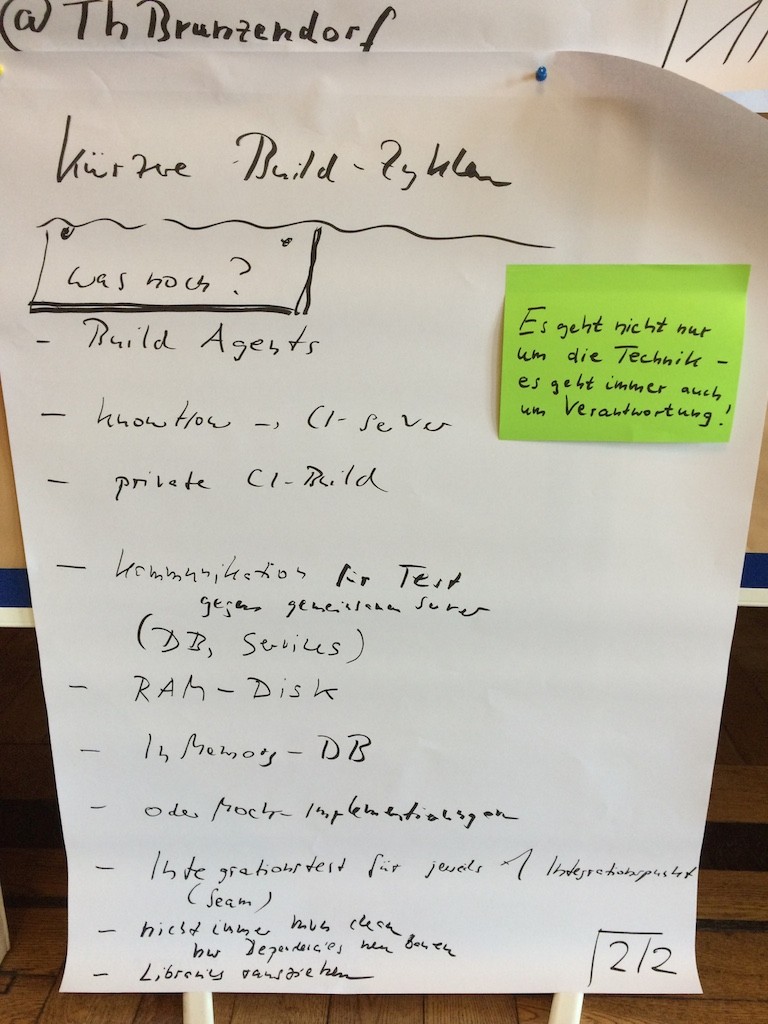 @ThBrunzendorf
Kürzere Build-Zyklen
Was noch?
- Build Agents
Es geht nicht nur
um die Technik -
es geht immer auch
um Verantwortung!
- KnowHow -> CI-Server
- private CI-Build
- Kommunikation für Test
gegen gemeinsamen Server
(DB, Services)
- RAM-Disk
- InMemory-DB
- oder Mock-Implementierungen
- Integrationstest für jeweils 1 Integrationspunkt
(Seam)
- nicht immer mvn clean
nur Dependencies neu bauen
- Libraries rausziehen
2/2